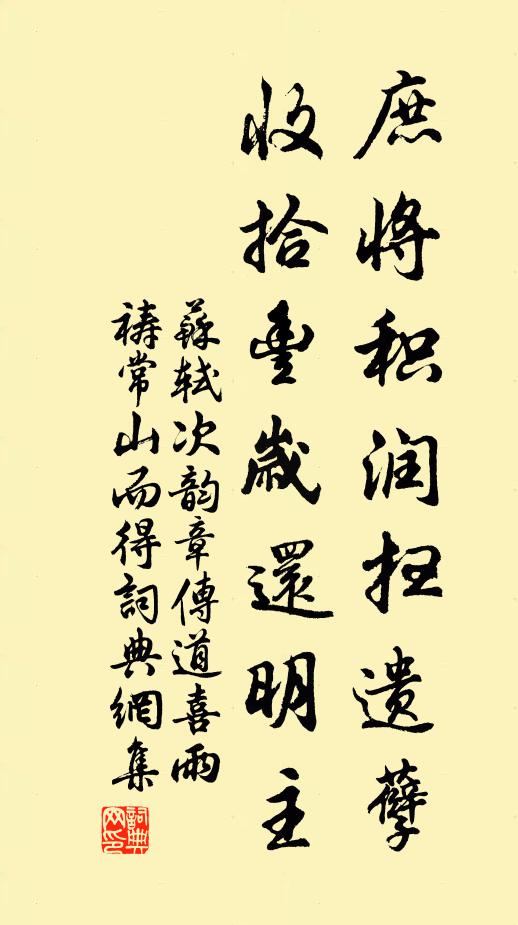 庶将积润扫遗孽
收拾豐歲還明主
蘇軾次韵章傳道喜雨
禱常山而得詞典網集
詞典
网印